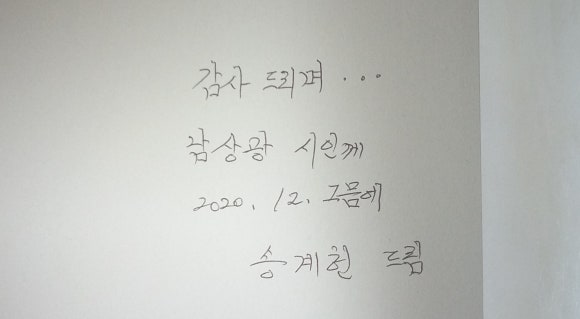 감사 드리며 ...
감상광 시인께
2020. 12. 그믐에
송계헌 드림